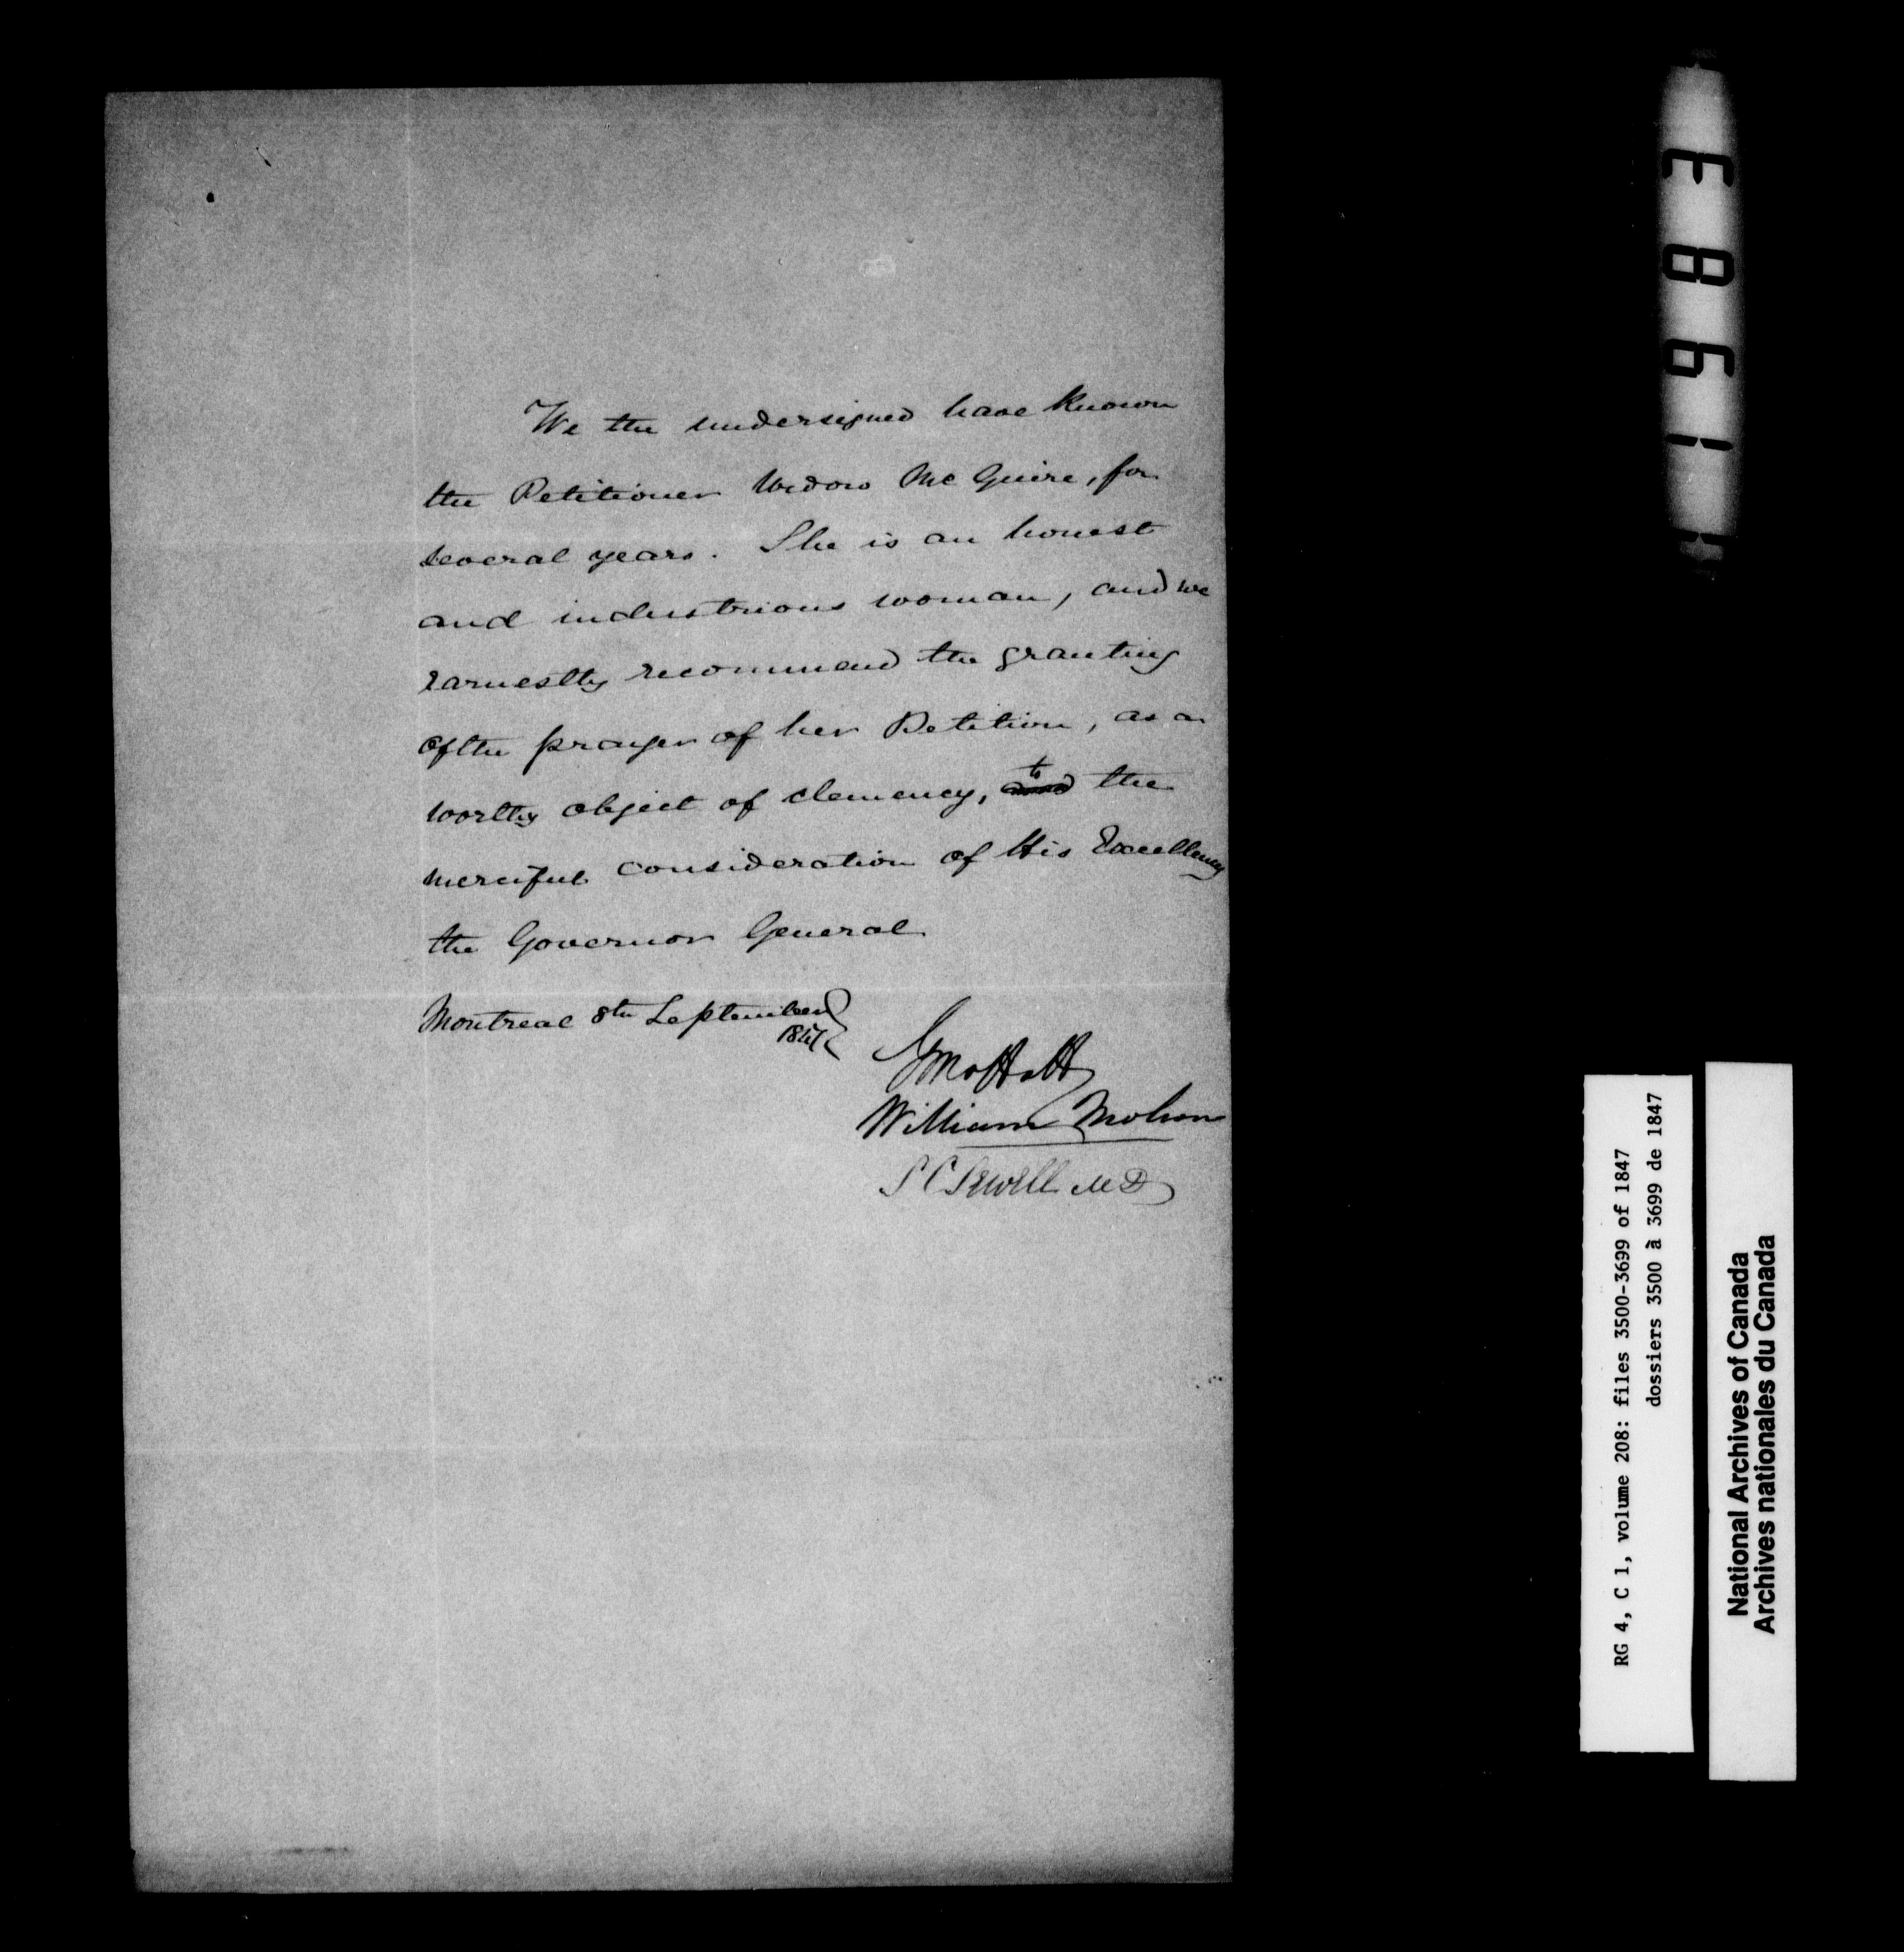 We the undersigned have known
the Petitioner Widow McGuire, for
several years. She is an honest
and industrious woman, and we
earnestly recommend the granting
of the prayer of her Petition, as a
worthy object of clemency, to the
merciful consideration of His Excellency
the Governor General
Montreal 8th September
1847
G Moffatt
William Molson
S C Sewell MD
E861
RG 4, C 1, volume 208: files 3500-3699 of 1847
dossiers 3500 à 3699 de 1847
National Archives of Canada
Archives nationales du Canada